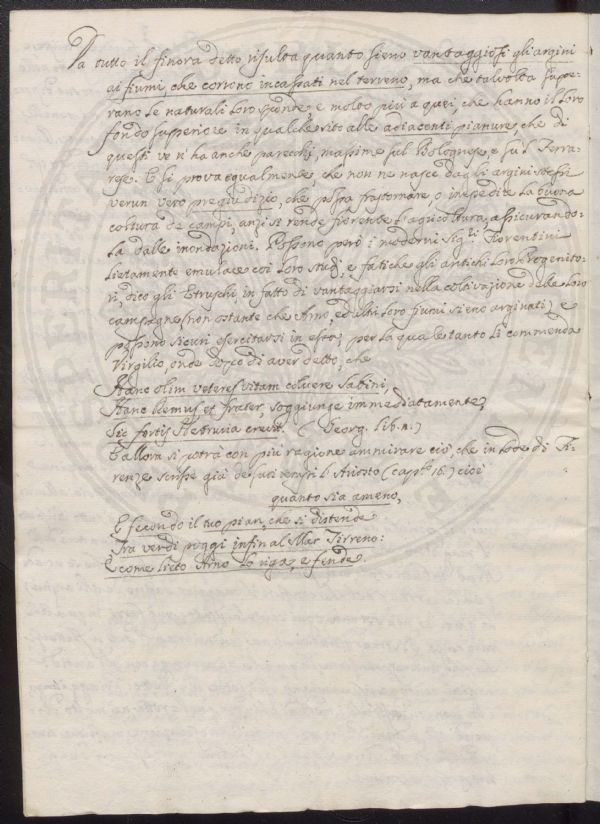 Da tutto il finora detto risulta quanto sieno vantaggiosi gli argini
ai fiumi, che corrono incassati nel terreno, ma che talvolta supe-
rano le naturali loro sponde, e molto più a quei, che hanno il loro
fondo superiore in qualche sito alle adiacenti pianure, che di
questi ve n'ha anche parecchi, massime sul Bolognese, e sul Ferra-
rese. E si prova egualmente, che non ne nasce dagli argini stessi
verun vero pregiudizio, che possa frastornare, o impedire la buona
coltura de campi, anzi si rende fiorente l'agricoltura, assicurando-
la dalle inondazioni. Possono però i moderni Sigri Fiorentini
lietamente emulare coi loro studj, e fatiche gli antichi loro Progenito-
ri, dico gli Etruschi in fatto di vantaggiarsi nella coltivazione delle loro
campagne (non ostante che Arno, ed altri loro fiumi sieno arginati) e
possono sicuri esercitarsi in essa, per la quale tanto li commenda
Virgilio, onde dopo di aver detto, che
Hanc olim veteres vitam coluere Sabini,
Hanc Remus et frater, soggiunge immediatamente,
Sic fortis Hetruria crevit. (Georg. lib. 2.)
E allora si potrà con più ragione ammirare ciò, che in lode di Fi-
renze scrisse già de' suoi tempi l'Ariosto (capº 16.) cioè
quanto sia ameno,
E fecondo il tuo pian, che si distende
Tra verdi poggi infin al Mar Tirreno:
E come lieto Arno lo riga, e fende.